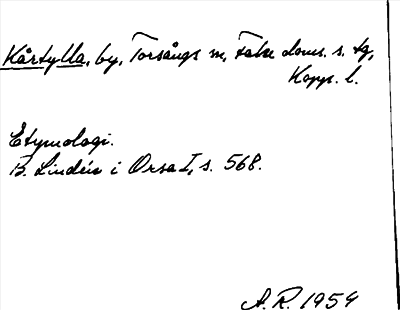 Kårtylla, by, Torsångs sn, Falu doms. s. tg,
Kopp. l.
Etymologi.
B. Lindén i Orsa I, s. 568.
A.R. 1954